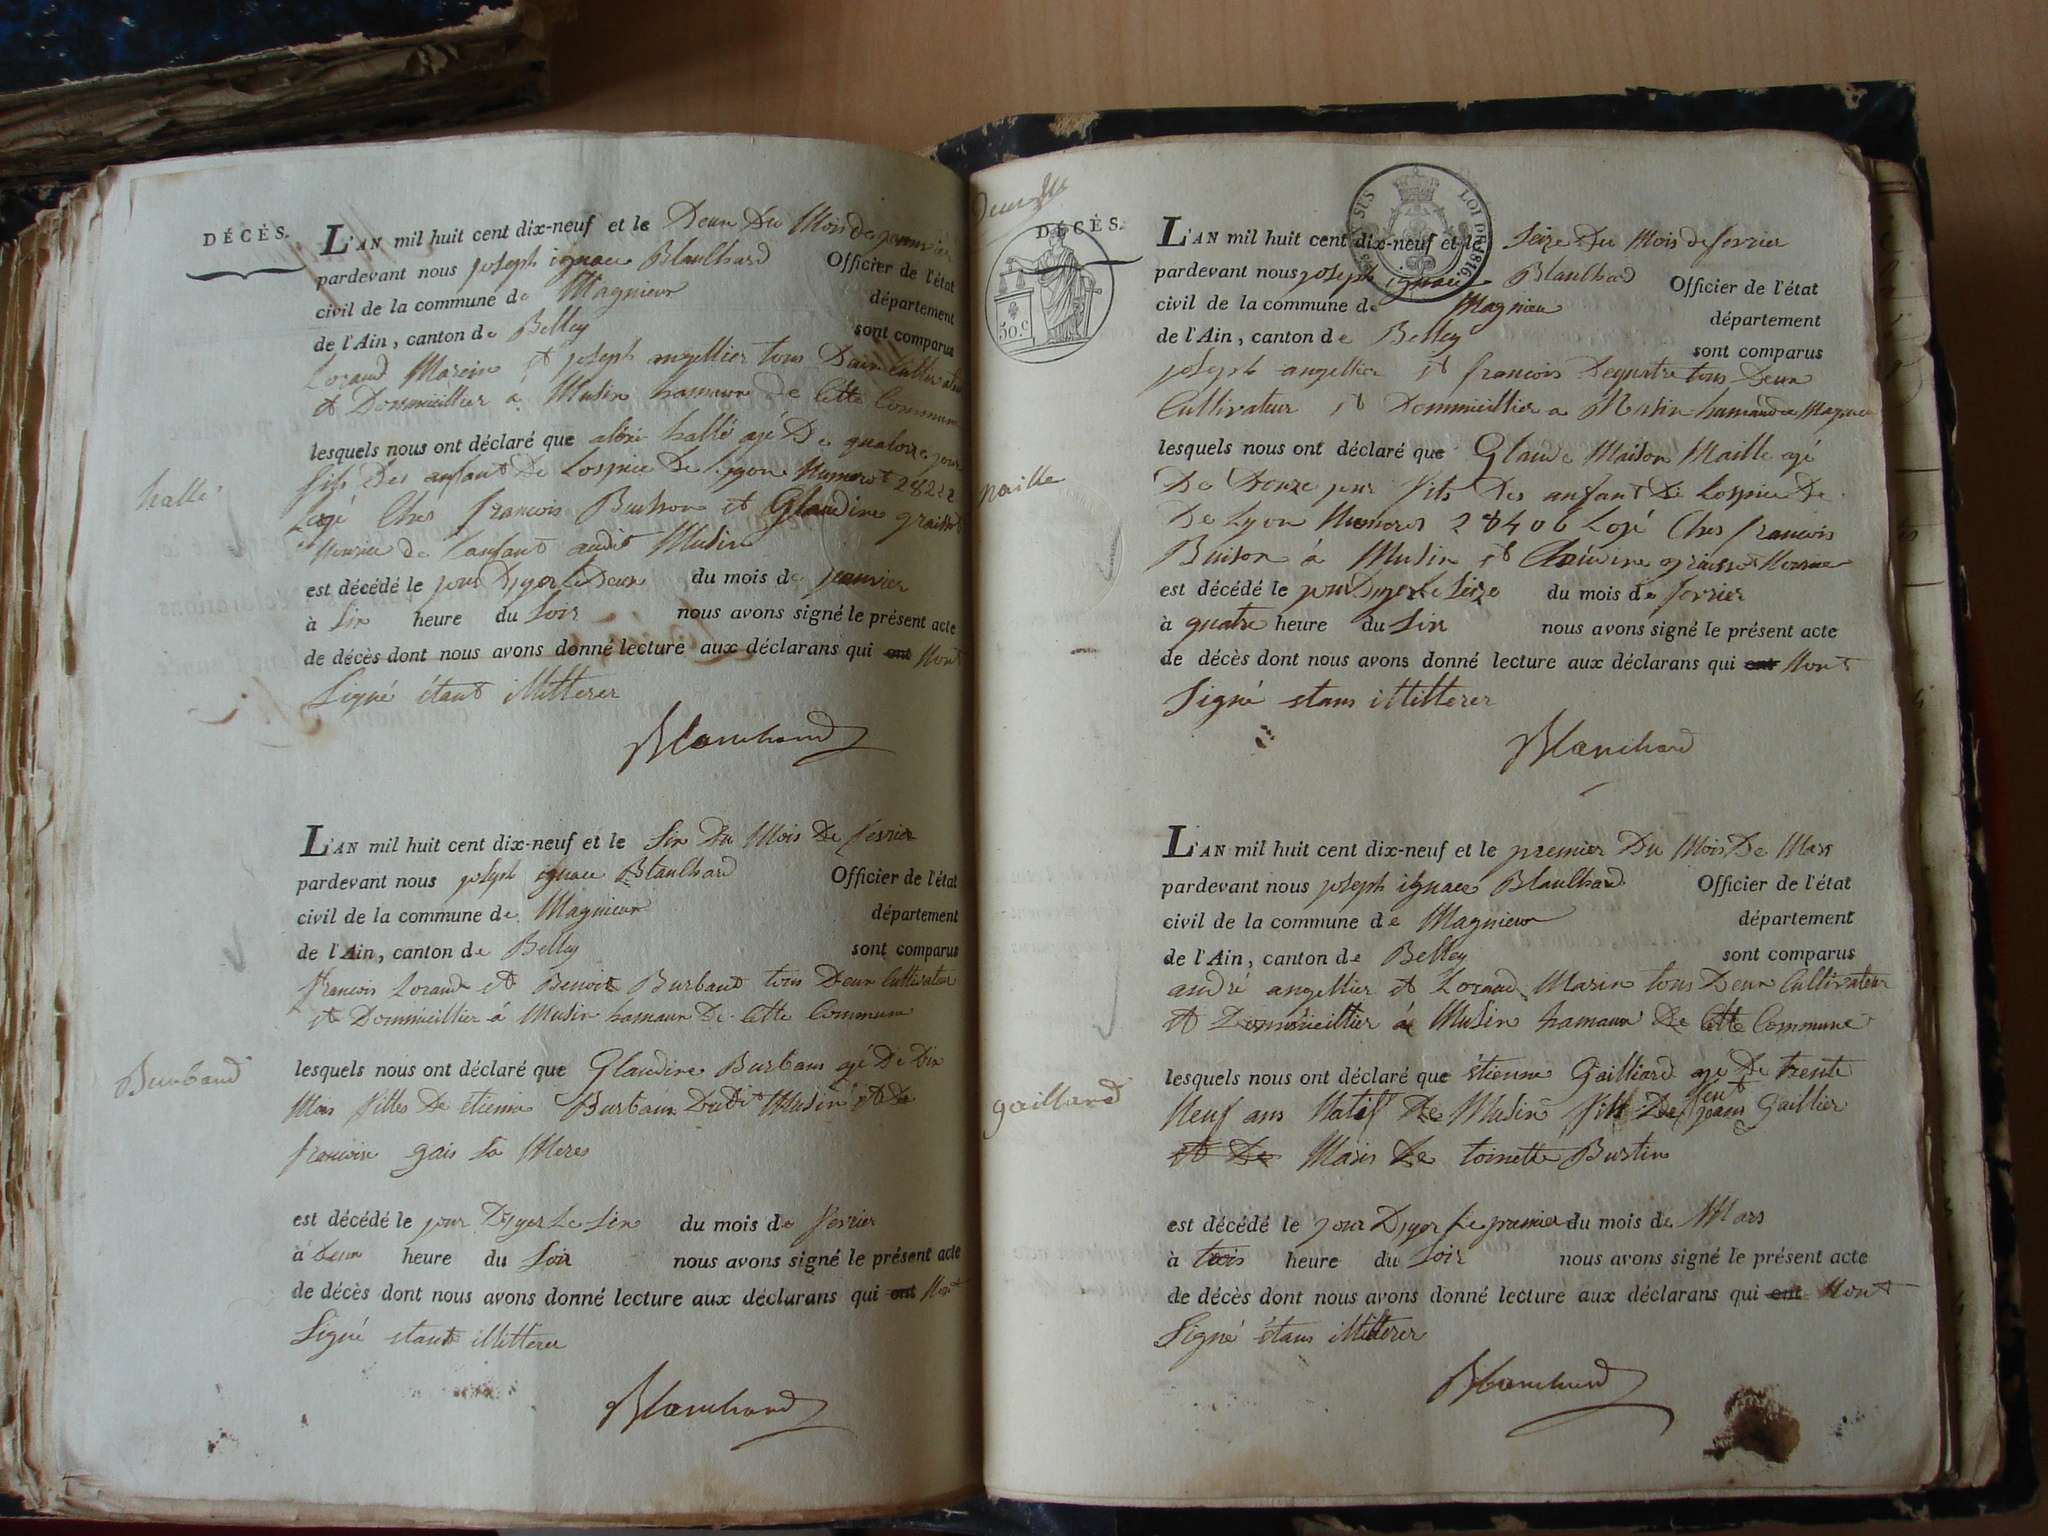 DÉCÈS.
L'AN mil huit cent dix-neuf et le Deux Du Mois de janvier
pardevant nous joseph ignace Blaulhard Officier de l'état
civil de la commune de Magnieux département
de l'Ain, canton de Belley sont comparus
Lorand Marein et joseph angellier tous Daux Cultivateur
et Dommicillier à Musin hamaux de Cette Commune
lesquels nous ont déclaré que hallé agé De quatorze jour
fils Des anfant De Lospice De Lyon Numerot
Logé Ches francois Buisson et Glaudine graissot
Nourice de l'anfant audit Musin
halle
est décédé le jour Dyer Le Deux du mois de janvier
à Six heure du Soir nous avons signé le présent acte
de décès dont nous avons donné lecture aux déclarans qui ont Nont
Signé étant illitterer
Blanchard
L'AN mil huit cent dix-neuf et le Six Du Mois De fevrier
pardevant nous joseph ignace Blaulhard Officier de l'état
civil de la commune de Magnieux département
de l'Ain, canton de Belley sont comparus
francois Lorand et Benoit Burbant tous Deux Cultivateur
et Dommicillier à Musin hamaux De Cette Commune
Burband
lesquels nous ont déclaré que Glaudine Burbans agé De Dix
Mois filles De étienne Burbaun Dudit Musin et De
francoise gais Sa Meres
est décédé le jour Dyer Le Six du mois de fevrier
à Deux heure du Soir nous avons signé le présent acte
de décès dont nous avons donné lecture aux déclarans qui ont Nont
Signé etant illitterer
Blanchard
DÉCÈS.
50.c
LOI DE 1816.
L'AN mil huit cent dix-neuf et le Seize Du Mois de fevrier
pardevant nous joseph ignace Blaulhard Officier de l'état
civil de la commune de Magnieu département
de l'Ain, canton de Belley sont comparus
joseph angellier et francois Degustre tous Deux
Cultivateur et Dommicillier a Musin hamaud de Magnieu
lesquels nous ont déclaré que Glaude Maison Maille agé
De Douze jour fils Des anfant De Lospice De
De Lyon Numerot 28406 Logé Ches francois
Buison à Musin et graissot Nourice
paille
est décédé le jour Dyer Le Seize du mois de fevrier
à quatre heure du Soir nous avons signé le présent acte
de décès dont nous avons donné lecture aux déclarans qui ont Nont
Signé etans illitterer
Blanchard
L'AN mil huit cent dix-neuf et le premier Du Mois De Mars
pardevant nous joseph ignace Blaulhard Officier de l'état
civil de la commune de Magnieux département
de l'Ain, canton de Belley sont comparus
andré angellier et Lorand Marin tous Deux Cultivateur
et Dommicillier à Musin hamaux De Cette Commune
gaillard
lesquels nous ont déclaré que étienne Gailliard agé De trente
Neuf ans Natif De Musin fils De feut jeans Gaillier
et De Maris De toinette Burtin
est décédé le jour Dyer Le premier du mois de Mars
à trois heure du Soir nous avons signé le présent acte
de décès dont nous avons donné lecture aux déclarans qui ont Nont
Signé étans illitterer
Blanchard